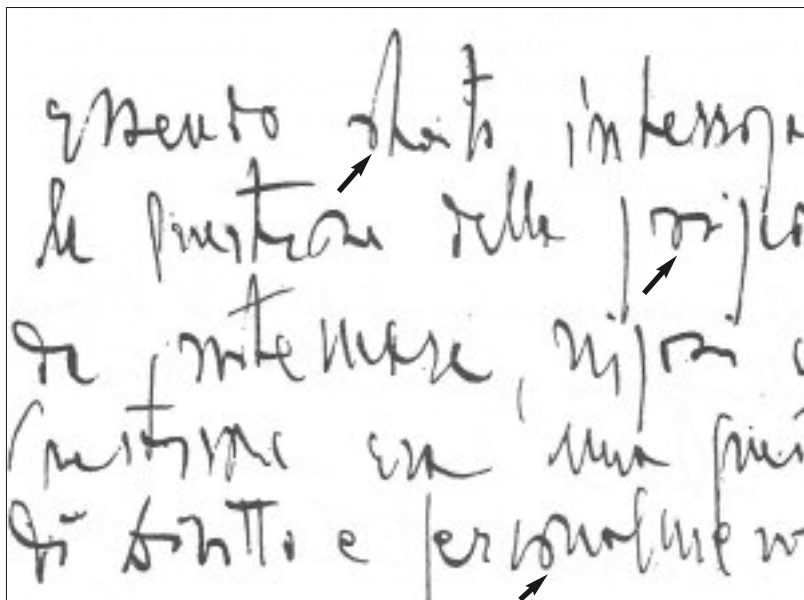 essendo stato interroga
la questione della prigio
da internare, risposi
questione era una
di diritto e personalmen